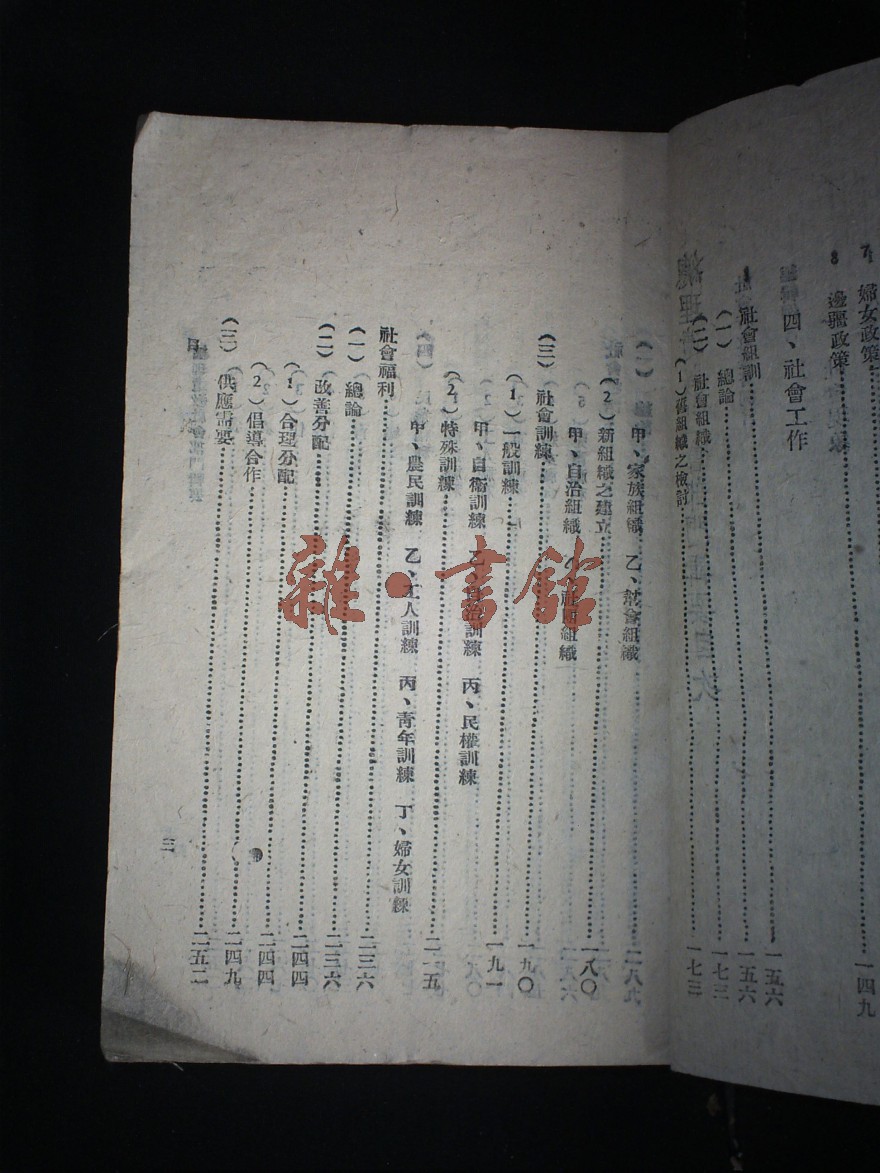 7 婦女政策
8 邊疆政策……一四九
四、社會工作
社會組訓……一五六
(一)總論……一五六
(二)社會組織……一七三
(1)舊組織之檢討……一七三
甲、家族組織 乙、幫會組織
(2)新組織之建立……一八〇
甲、自治組織 乙、社團組織
(三)社會訓練……一九〇
(1)一般訓練……一九一
甲、自衛訓練 乙、自治訓練 丙、民權訓練
(2)特殊訓練……二一五
甲、農民訓練 乙、工人訓練 丙、青年訓練 丁、婦女訓練
社會福利……二三六
(一)總論……二三六
(二)改善分配……二四四
(1)合理分配……二四四
(2)倡導合作……二四九
(三)供應需要……二五二
目
三
雜·書館